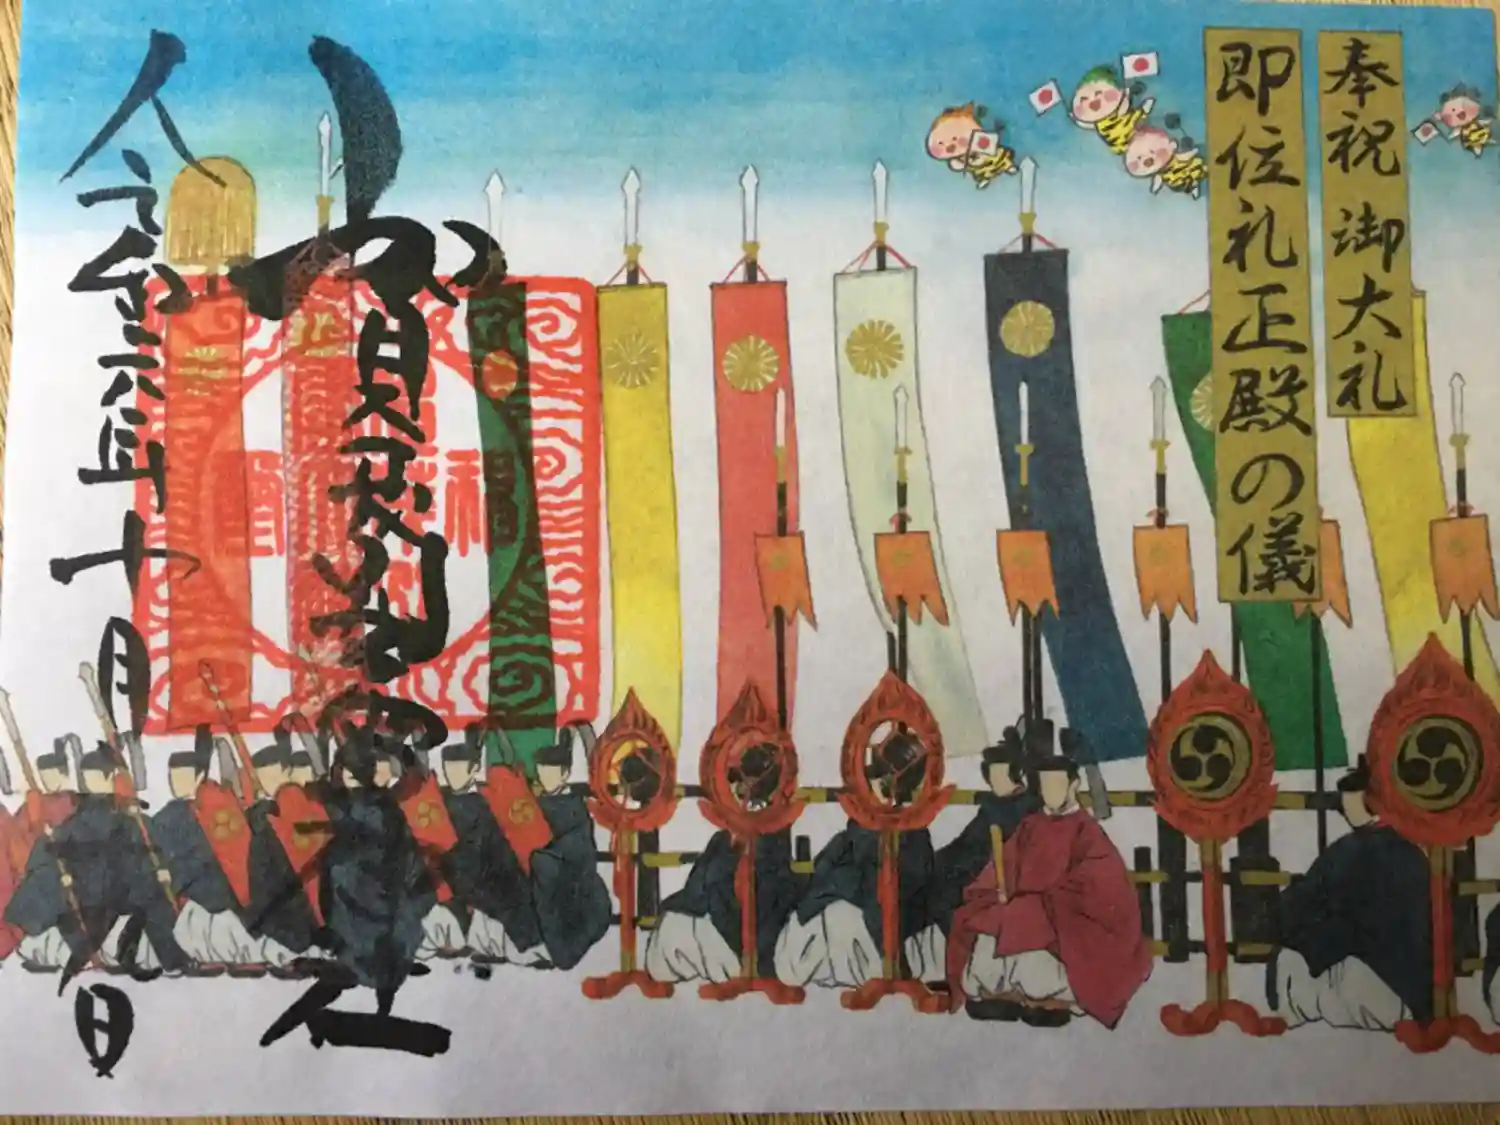 奉祝 御大礼
即位礼正殿の儀
賀茂別雷神社
令和六年十月九日